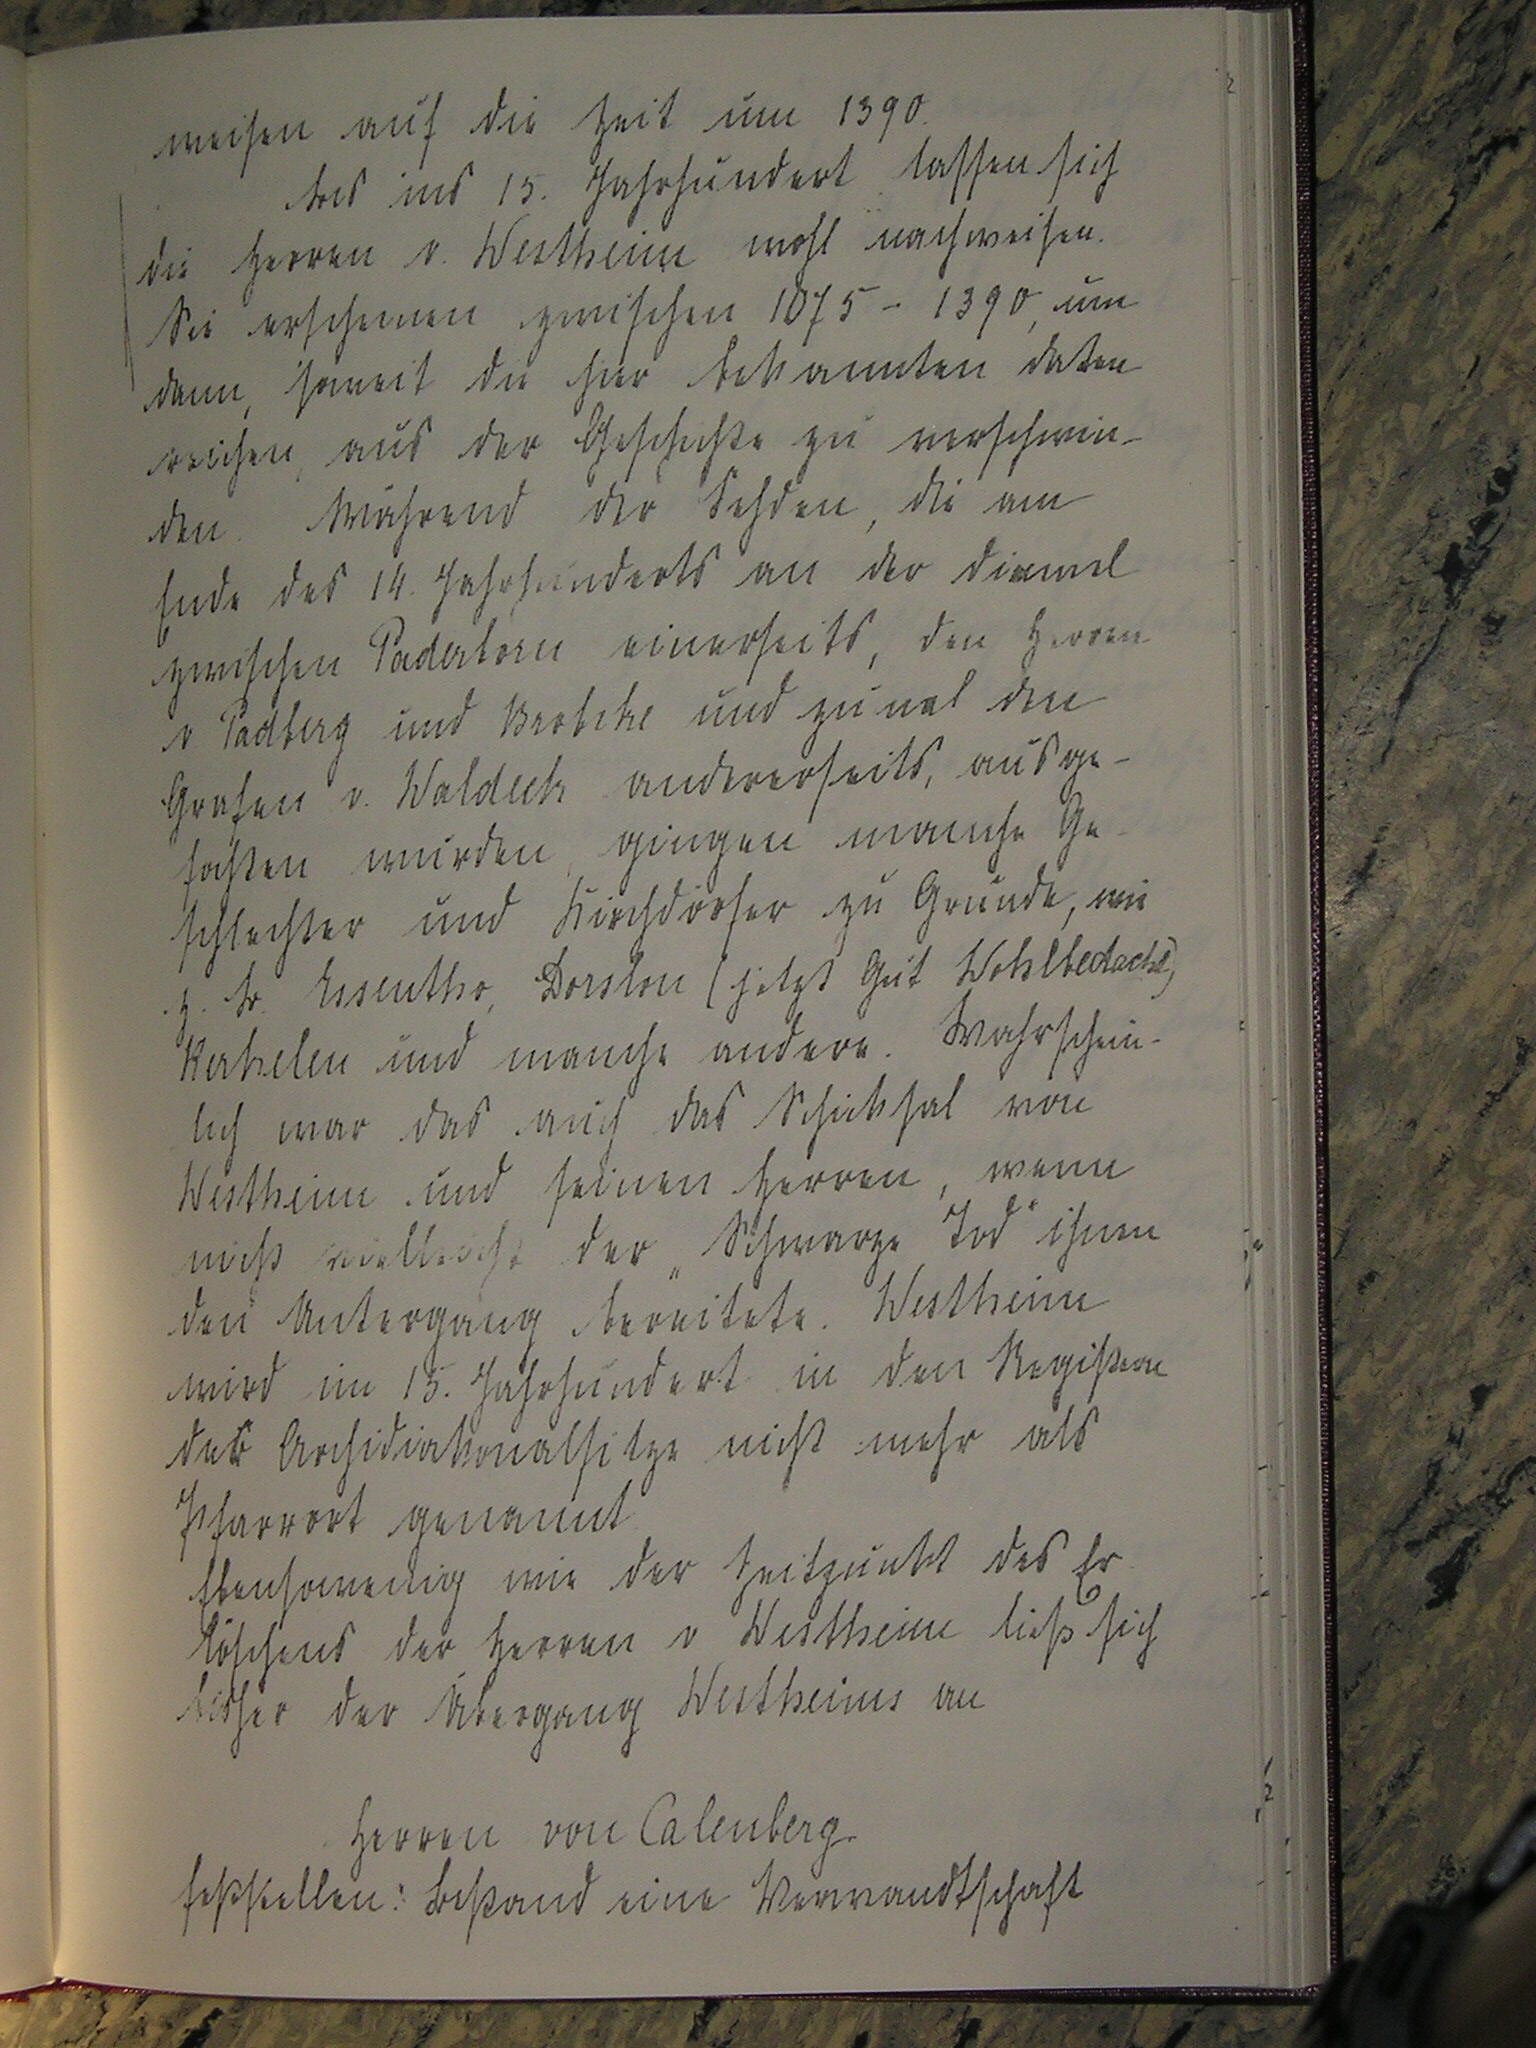 weisen auf die Zeit um 1390.
Bis ins 15. Jahrhundert lassen sich
die Herren v. Westheim wohl nachweisen.
Sie erscheinen zwischen 1075 - 1390, um
dann, soweit die hier bekannten Daten
reichen, aus der Geschichte zu verschwin-
den. Während der Fehden, die am
Ende des 14. Jahrhunderts an der Diemel
zwischen Paderborn einerseits, den Herren
v. Padberg und und zumal den
Grafen v. Waldeck andererseits, ausge-
fochten wurden, gingen manche Ge-
schlechter und Kirchdörfer zu Grunde, wie
z. B. Essentho, Dorslon (jetzt Gut Wohlbedacht),
und manche andere. Wahrschein-
lich war das auch das Schicksal von
Westheim und seinen Herren, wenn
nicht vielleicht der „Schwarze Tod" ihnen
den Untergang bereitete. Westheim
wird im 15. Jahrhundert in den Registern
der Archidiakonalsitze nicht mehr als
Pfarrort genannt
Ebensowenig wie der Zeitpunkt des Er-
löschens der Herren v Westheim ließ sich
bisher der Übergang Westheims an
Herren von Calenberg
feststellen: Bestand eine Verwandtschaft